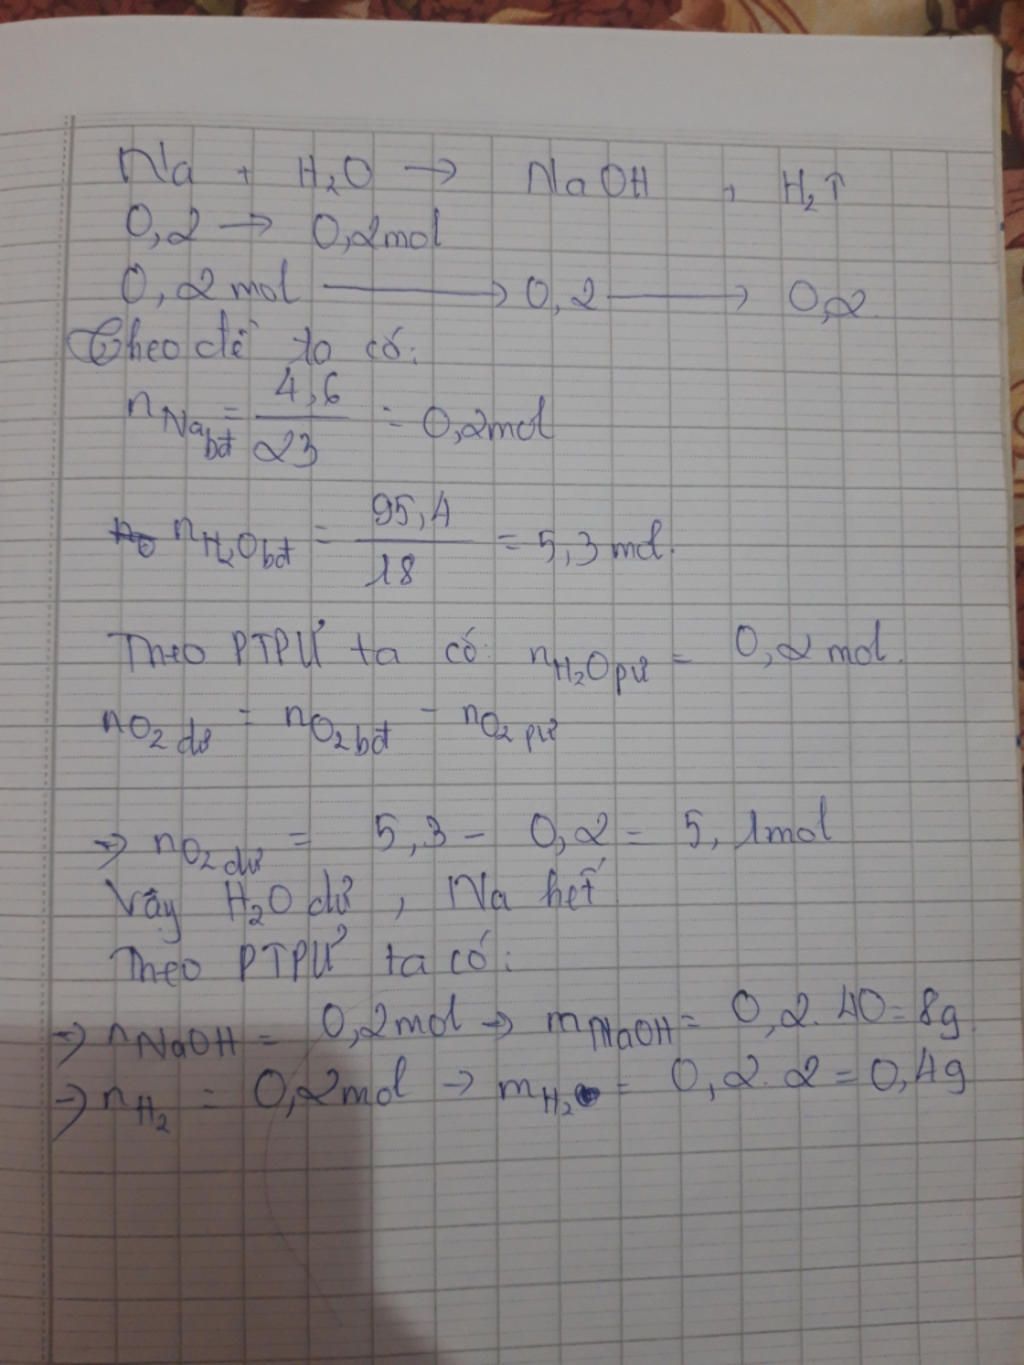 Na + H₂O → NaOH + H₂↑
0,2 → 0,2mol
0,2mol → 0,2 → 0,2
Theo đề ta có:
nNa bđ = 4,6/23 = 0,2mol
nH₂O bđ = 95,4/18 = 5,3mol.
Theo PTPƯ ta có: nH₂O pư = 0,2mol.
nO₂ dư = nO₂ bđ - nO₂ pư
→ nO₂ dư = 5,3 - 0,2 = 5,1mol
Vậy H₂O dư, Na hết
Theo PTPƯ ta có:
→ nNaOH = 0,2mol → mNaOH = 0,2.40=8g
→ nH₂ = 0,2mol → mH₂ = 0,2.2=0,4g